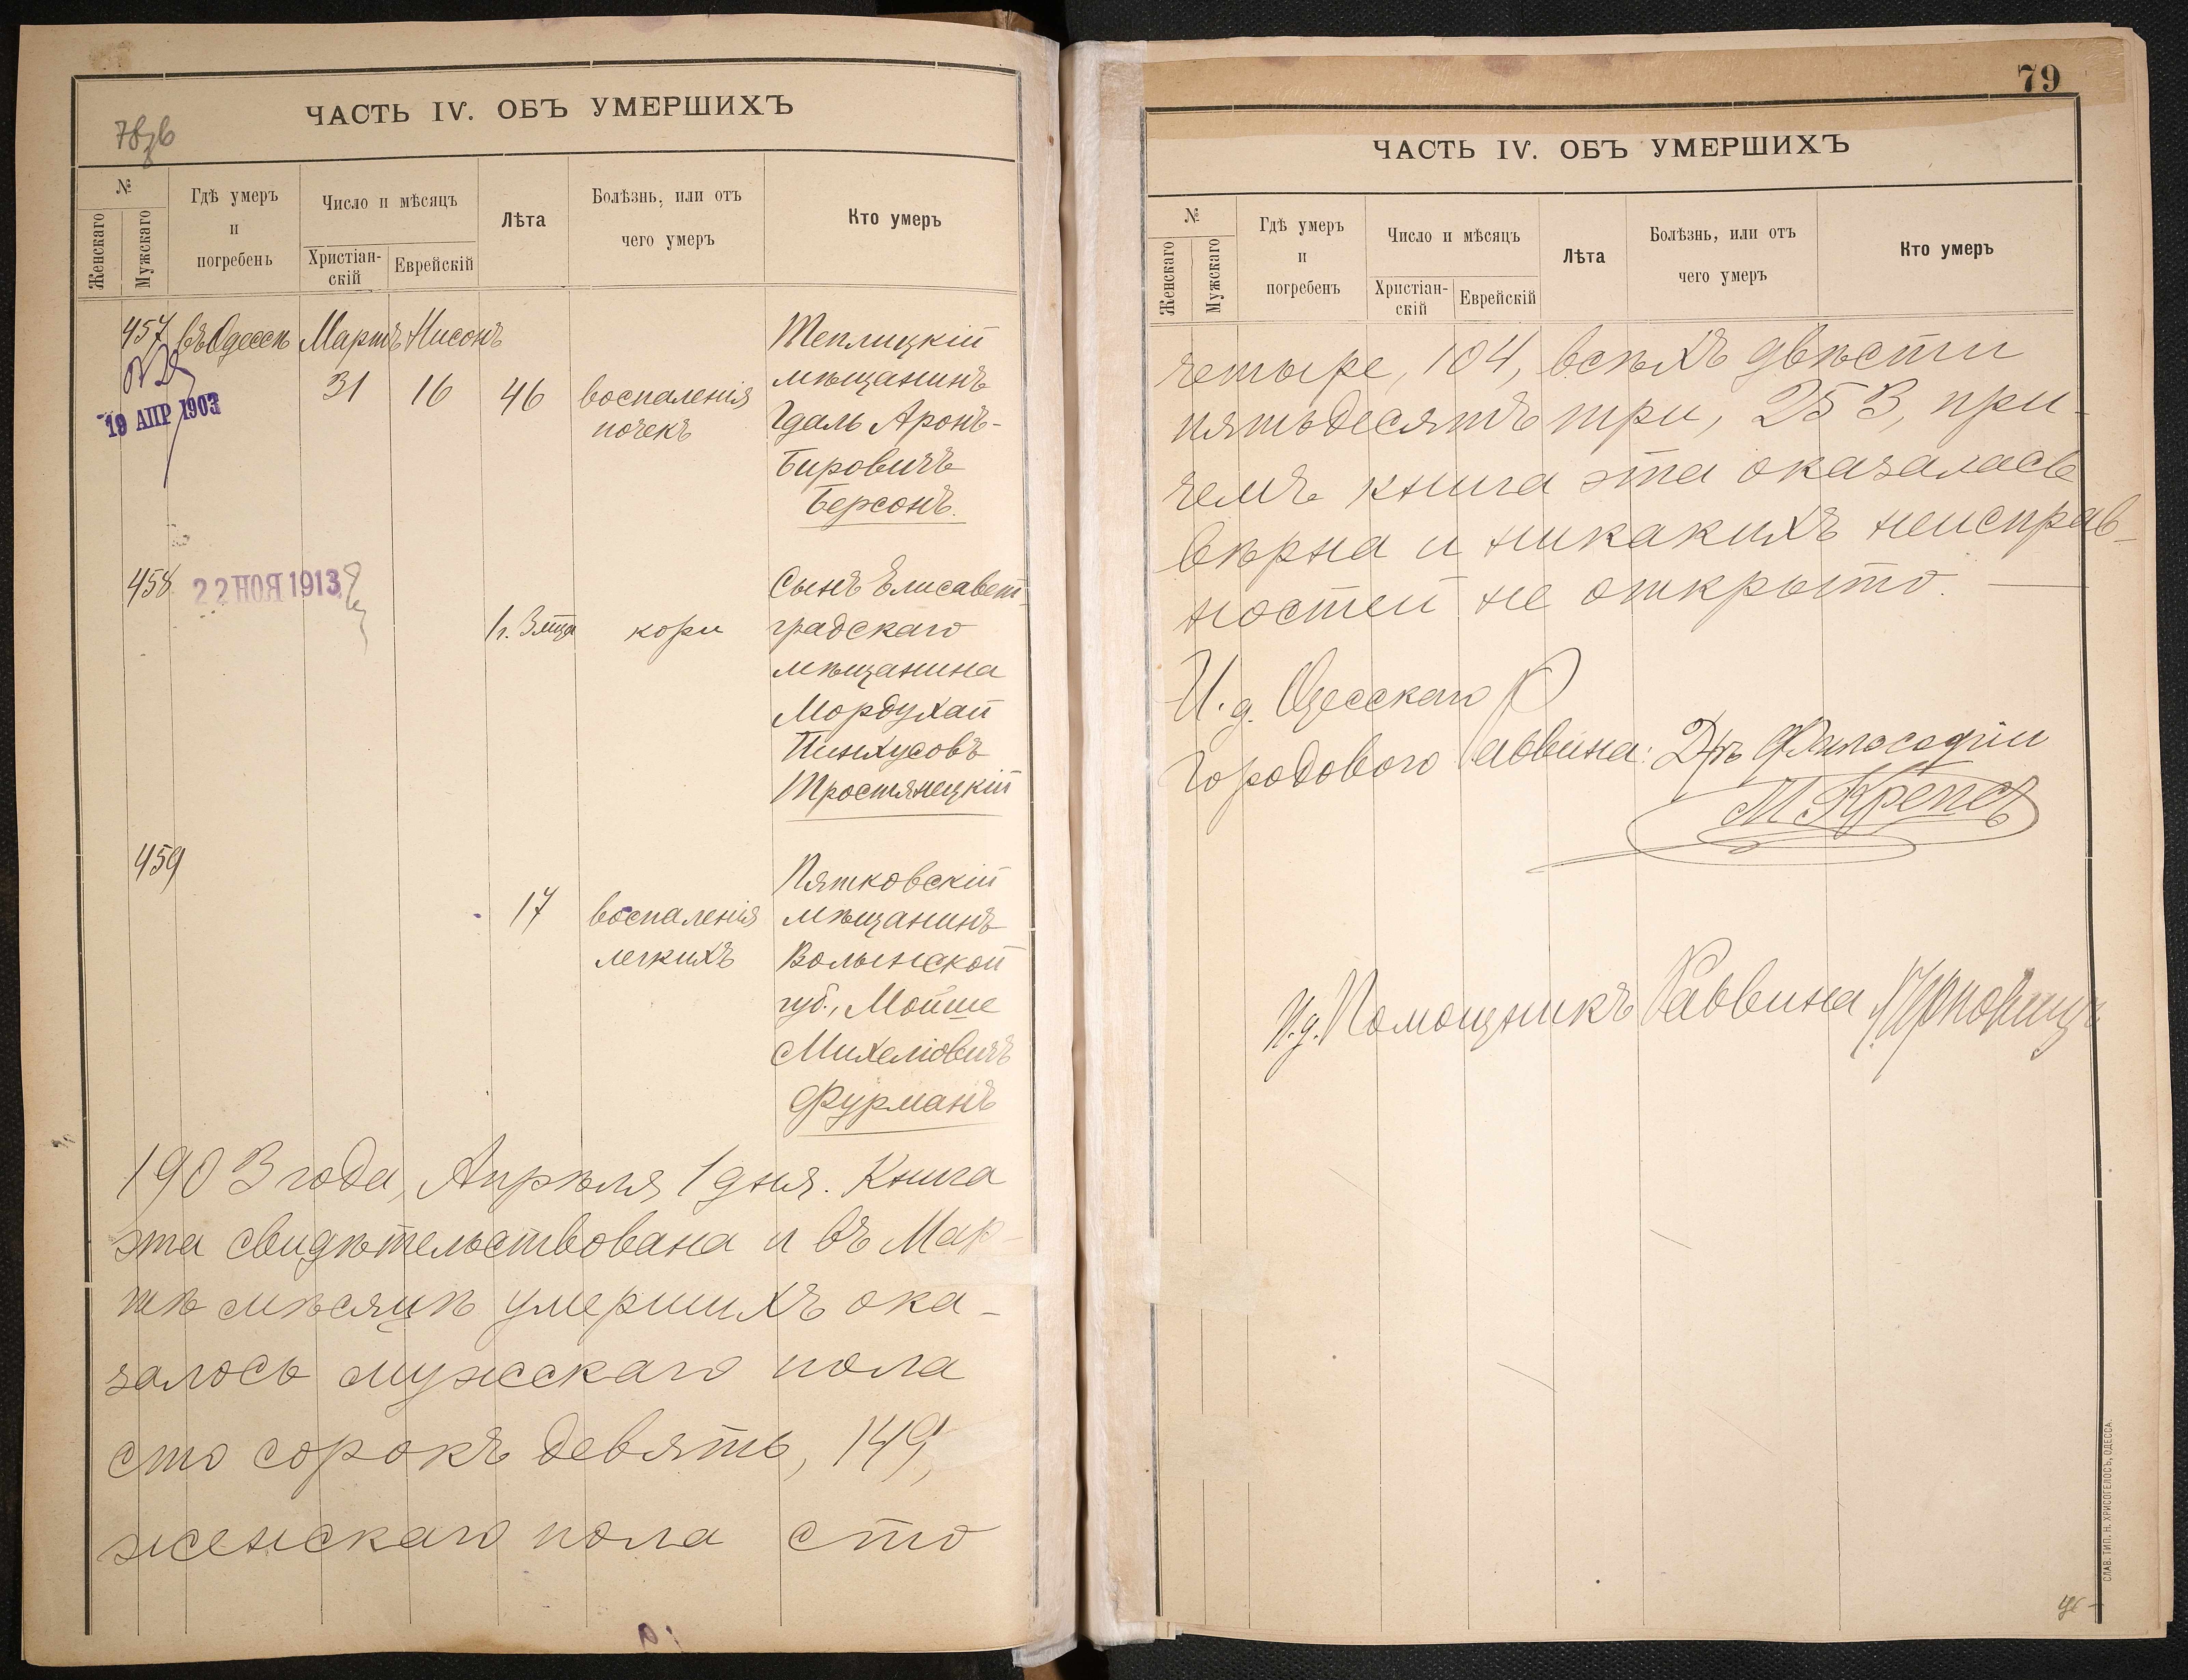 ЧАСТЬ IV. ОБЪ УМЕРШИХЪ
№
Женскаго
Мужскаго
Гдѣ умеръ
и
погребенъ
Число и мѣсяцъ
Христіан-
скій
Еврейскій
Лѣта
Болѣзнь, или отъ
чего умеръ
Кто умеръ
457 въ Одессѣ Мартъ Нисонъ
31 16 46 воспаленія
почекъ
Теплицкій
мѣщанинъ
Гдаль Аронъ-
Бировичъ
Берсонъ.
19 АПР 1903
458
22 НОЯ 1913
1 г. 3 мца кори
Сынъ Елисавет-
градскаго
мѣщанина
Мордухай
Пинхусовъ
Тростянецкій
459
17 воспаленія
легкихъ
Пятковскій
мѣщанинъ
Волынской
губ., Мойше
Михелiовичъ
Фурманъ
1903 года, Апрѣля 1 дня. Книга
эта свидѣтельствована и въ Мар-
тѣ мѣсяцѣ умершихъ ока-
залось мужскаго пола
сто сорокъ девять, 149,
женскаго пола сто
79
ЧАСТЬ IV. ОБЪ УМЕРШИХЪ
№
Женскаго
Мужскаго
Гдѣ умеръ
и
погребенъ
Число и мѣсяцъ
Христіан-
скій
Еврейскій
Лѣта
Болѣзнь, или отъ
чего умеръ
Кто умеръ
четыре, 104, всѣхъ двѣсти
пятьдесятъ три, 253, при-
чемъ книга эта оказалась
вѣрна и никакихъ неисправ-
ностей не открыто.
И. д. Одесскаго
Городового Раввина: Д-ръ Философіи
М. Крепсъ
И. д. Помощникъ Раввина
СЛАВ. ТИП. Н. ХРИСОГЕЛОСЪ, ОДЕССА.